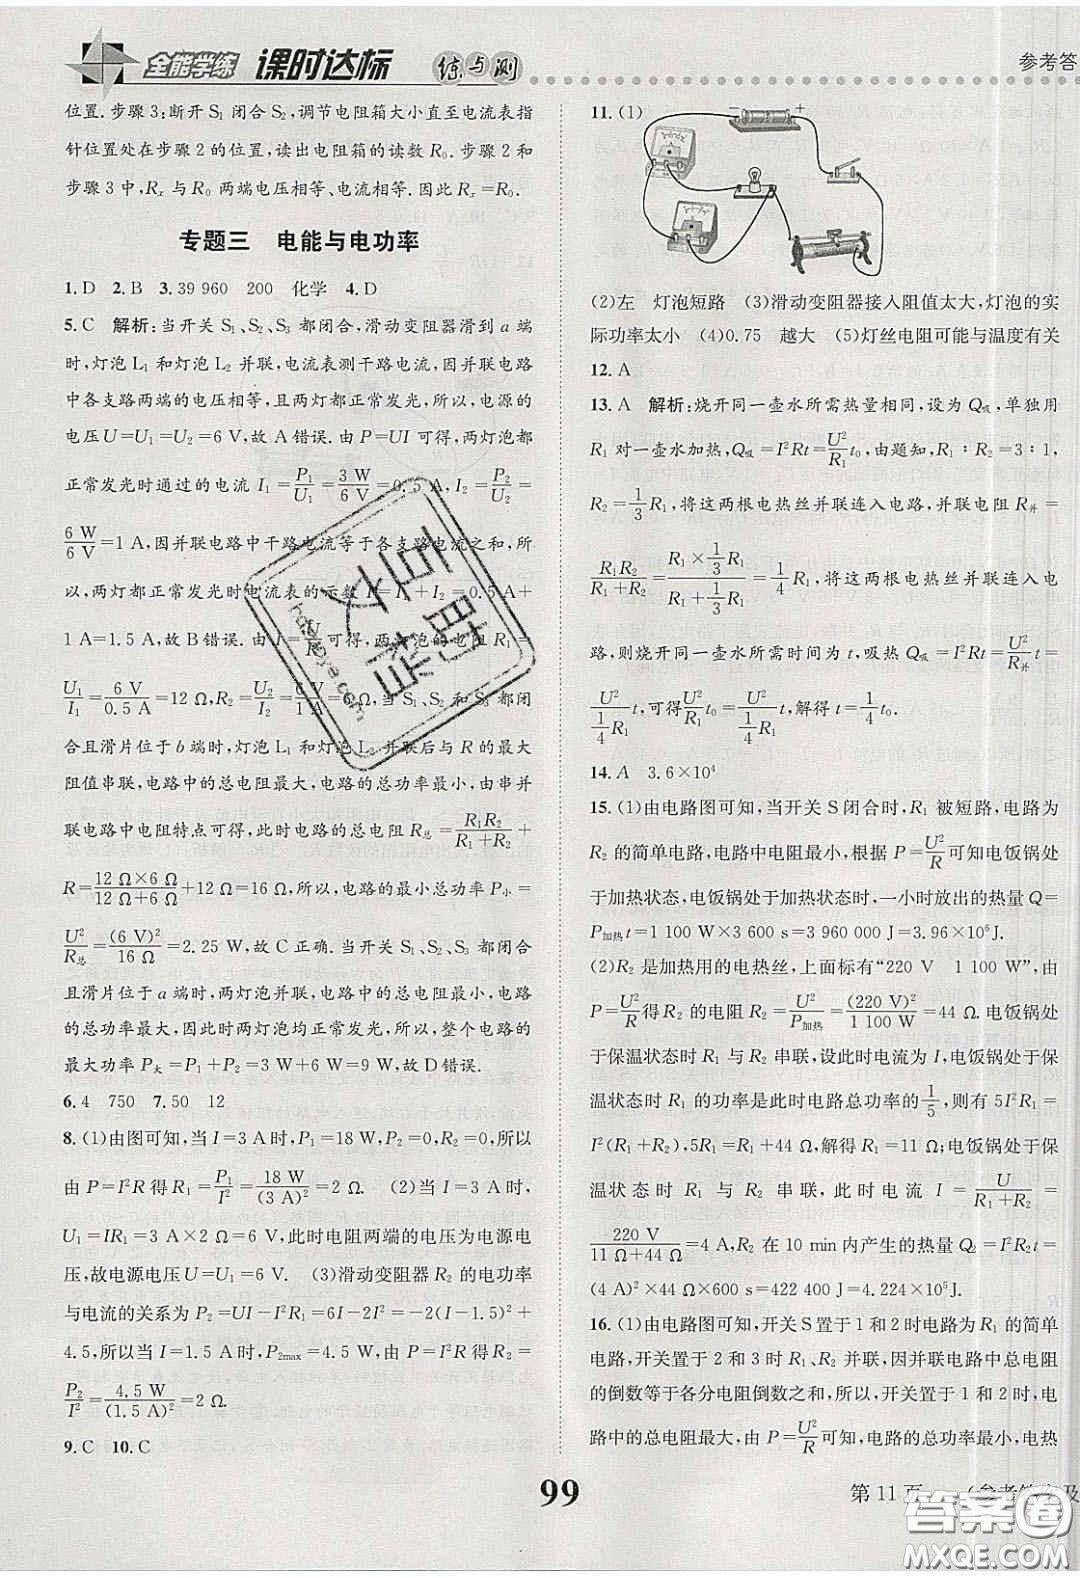 全能学练 课时达标 练与测
参考答
位置.步骤3:断开S₁闭合S₂,调节电阻箱大小直至电流表指
针位置处在步骤2的位置,读出电阻箱的读数R₀.步骤2和
步骤3中,Rₓ与R₀两端电压相等、电流相等.因此Rₓ=R₀.
专题三 电能与电功率
1.D 2.B 3.39 960 200 化学 4.D
5.C 解析:当开关S₁、S₂、S₃都闭合,滑动变阻器滑到a端
时,灯泡L₁和灯泡L₂并联,电流表测干路电流,因并联电路
中各支路两端的电压相等,且两灯都正常发光,所以,电源的
电压U=U₁=U₂=6 V,故A错误.由P=UI可得,两灯泡都
正常发光时通过的电流I₁=P₁/U₁=3 W/6 V=0.5 A,I₂=P₂/U₂=
6 W/6 V=1 A,因并联电路中干路电流等于各支路电流之和,所
以,两灯都正常发光时电流表的示数I=I₁+I₂=0.5 A+
1 A=1.5 A,故B错误.由I=U/R可得,两灯泡的电阻R₁=
U₁/I₁=6 V/0.5 A=12 Ω,R₂=U₂/I₂=6 V/1 A=6 Ω,当S₁、S₂、S₃都闭
合且滑片位于b端时,灯泡L₁和灯泡L₂并联后与R的最大
阻值串联,电路中的总电阻最大,电路的总功率最小,由串并
联电路中电阻特点可得,此时电路的总电阻R总=R₁R₂/(R₁+R₂)+
R=(12 Ω×6 Ω)/(12 Ω+6 Ω)+12 Ω=16 Ω,所以,电路的最小总功率P小=
U²/R总=(6 V)²/16 Ω=2.25 W,故C正确.当开关S₁、S₂、S₃都闭合
且滑片位于a端时,两灯泡并联,电路中的总电阻最小,电路
的总功率最大,因此时两灯泡均正常发光,所以,整个电路的
最大功率P大=P₁+P₂=3 W+6 W=9 W,故D错误.
6.4 750 7.50 12
8.(1)由图可知,当I=3 A时,P₁=18 W,P₂=0,R₂=0,所以
由P=I²R得R₁=P₁/I²=18 W/(3 A)²=2 Ω. (2)当I=3 A时,
U₁=IR₁=3 A×2 Ω=6 V,此时电阻两端的电压为电源电
压,故电源电压U=U₁=6 V. (3)滑动变阻器R₂的电功率
与电流的关系为P₂=UI-I²R₁=6I-2I²=-2(I-1.5)²+
4.5,所以当I=1.5 A时,P₂max=4.5 W,由P=I²R得R₂=
P₂/I²=4.5 W/(1.5 A)²=2 Ω.
9.C 10.C
11.(1)
- +
(2)左 灯泡短路 (3)滑动变阻器接入阻值太大,灯泡的实
际功率太小 (4)0.75 越大 (5)灯丝电阻可能与温度有关
12.A
13.A 解析:烧开同一壶水所需热量相同,设为Q吸,单独用
R₁对一壶水加热,Q吸=I²Rt=U²/R₁t₀,由题知,R₁∶R₂=3∶1,
R₂=1/3R₁,将这两根电热丝并联连入电路,并联电阻R并=
R₁R₂/(R₁+R₂)=(R₁×1/3R₁)/(R₁+1/3R₁)=1/4R₁,将这两根电热丝并联连入电
路,则烧开同一壶水所需时间为t,吸热Q吸=I²Rt=U²/R并t=
U²/(1/4R₁)t,可得U²/R₁t₀=U²/(1/4R₁)t,解得t=1/4t₀.
14.A 3.6×10⁴
15.(1)由电路图可知,当开关S闭合时,R₁被短路,电路为
R₂的简单电路,电路中电阻最小,根据P=U²/R可知电饭锅处
于加热状态,电饭锅处于加热状态时,一小时放出的热量Q=
P加热t=1 100 W×3 600 s=3 960 000 J=3.96×10⁶J.
(2)R₂是加热用的电热丝,上面标有“220 V 1 100 W”,由
P=U²/R得R₂的电阻R₂=U²/P加热=(220 V)²/1 100 W=44 Ω.电饭锅处
于保温状态时R₁与R₂串联,设此时电流为I,电饭锅处于保
温状态时R₁的功率是此时电路总功率的1/5,则有5I²R₁=
I²(R₁+R₂),5R₁=R₁+44Ω,解得R₁=11 Ω;电饭锅处于保
温状态时R₁与R₂串联,此时电流I=U/(R₁+R₂)=
220 V/(11 Ω+44 Ω)=4 A,R₂在10 min内产生的热量Q₂=I²R₂t=
(4 A)²×44 Ω×600 s=422 400 J=4.224×10⁵J.
16.(1)由电路图可知,开关S置于1和2时电路为R₁的简单
电路,开关置于2和3时R₁、R₂并联,因并联电路中总电阻
的倒数等于各分电阻倒数之和,所以,开关置于1和2时,电
路中的总电阻最大,由P=U²/R可知,电路的总功率最小,电热
99
第11页
(参考答案及
答案圈
MXQE.COM